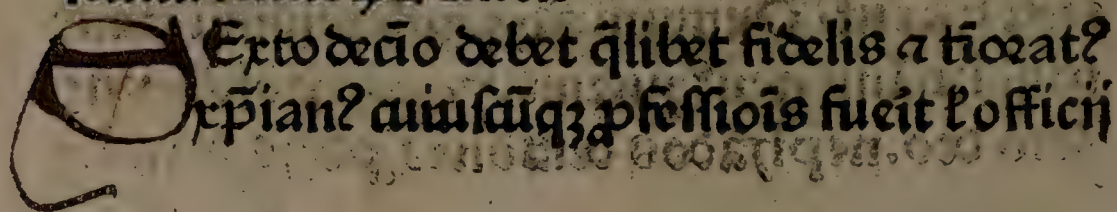 SExto decīo debet q̄libet fidelis ⁊ tīoratꝰ
xp̄ianꝰ cuiuſcūqꝫ ꝓfeſſioīs fueīt ł officij